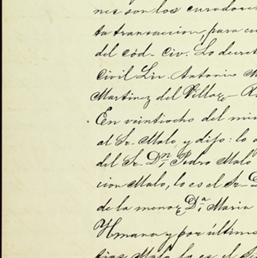 nes son los curadores
ta transacion, para cu
del cód. Civ. Lo decretó
Civil Lic. Antonio M
Martinez del Villar
En veintiocho del mis
al Sr. Malo, y dijo: lo o
del Sr. Dn. Pedro Malo
cion Malo, lo es el Sr. D
de la menor Da. Maria
y por último
Malo lo es el S